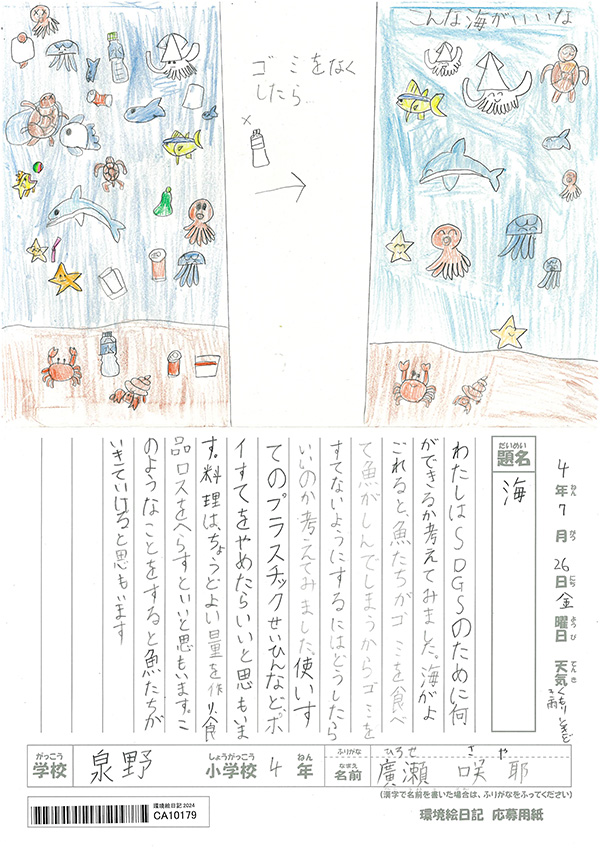 こんな海がいいな
ゴミをなく
したら…
×
4年ねん7月がつ26日にち金曜日ようび 天気てんき くもりときどき雨
だいめい
題名
海
わたしはSDGSのために何
ができるか考えてみました。海がよ
ごれると、魚たちがゴミを食べ
て魚がしんでしまうからゴミを
すてないようにするにはどうしたら
いいのか考えてみました、使いす
てのプラスチックせいひんなど、ポ
イすてをやめたらいいと思もいま
す。料理は、ちょうどよい量を作り、食
品ロスをへらすといいと思もいます。こ
のようなことをすると魚たちが
いきていけると思もいます
がっこう しょうがっこう ねん ふりがな ひろせ さや
学校 泉野 小学校 4 年 なまえ 名前 廣瀬 咲耶
(漢字で名前を書いた場合は、ふりがなをふってください)
環境絵日記2024
CA10179
環境絵日記 応募用紙